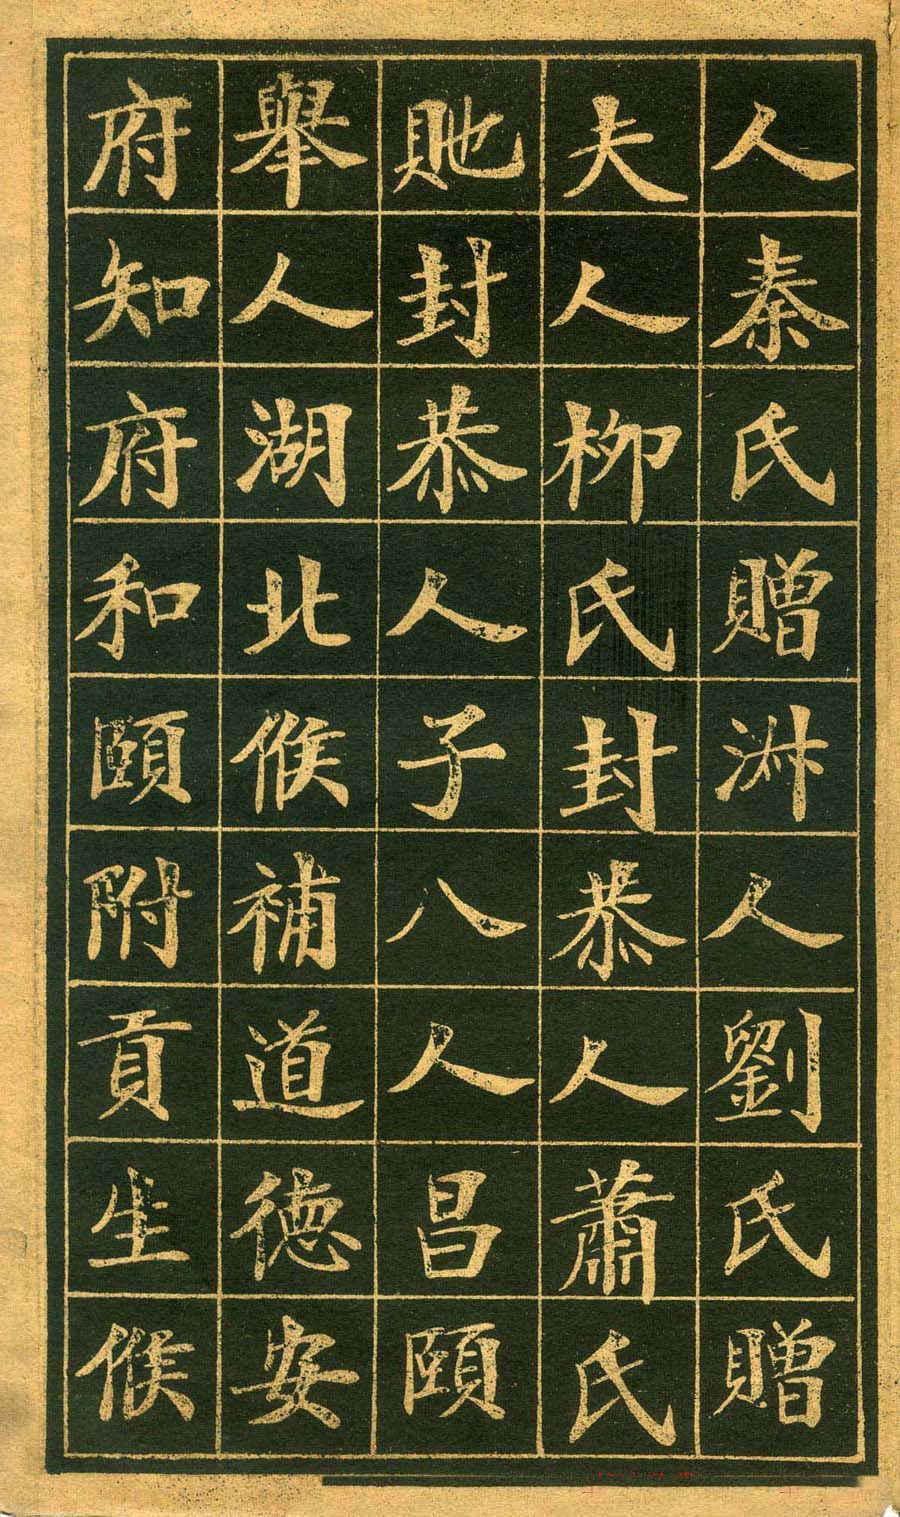 人秦氏贈淑人劉氏贈
夫人柳氏封恭人蕭氏
貤封恭人子八人昌頤
舉人湖北候補道德安
府知府和頤附貢生候